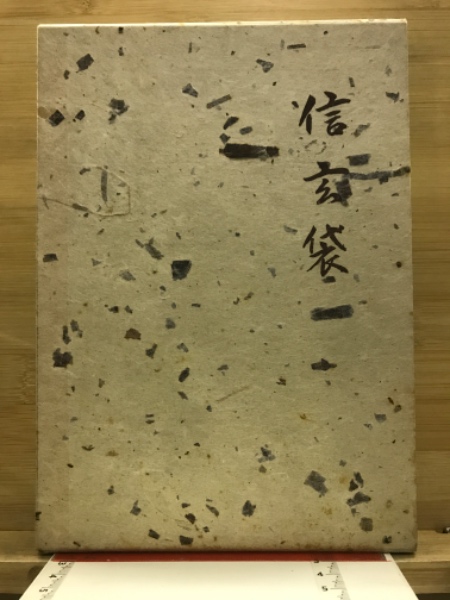 信玄袋